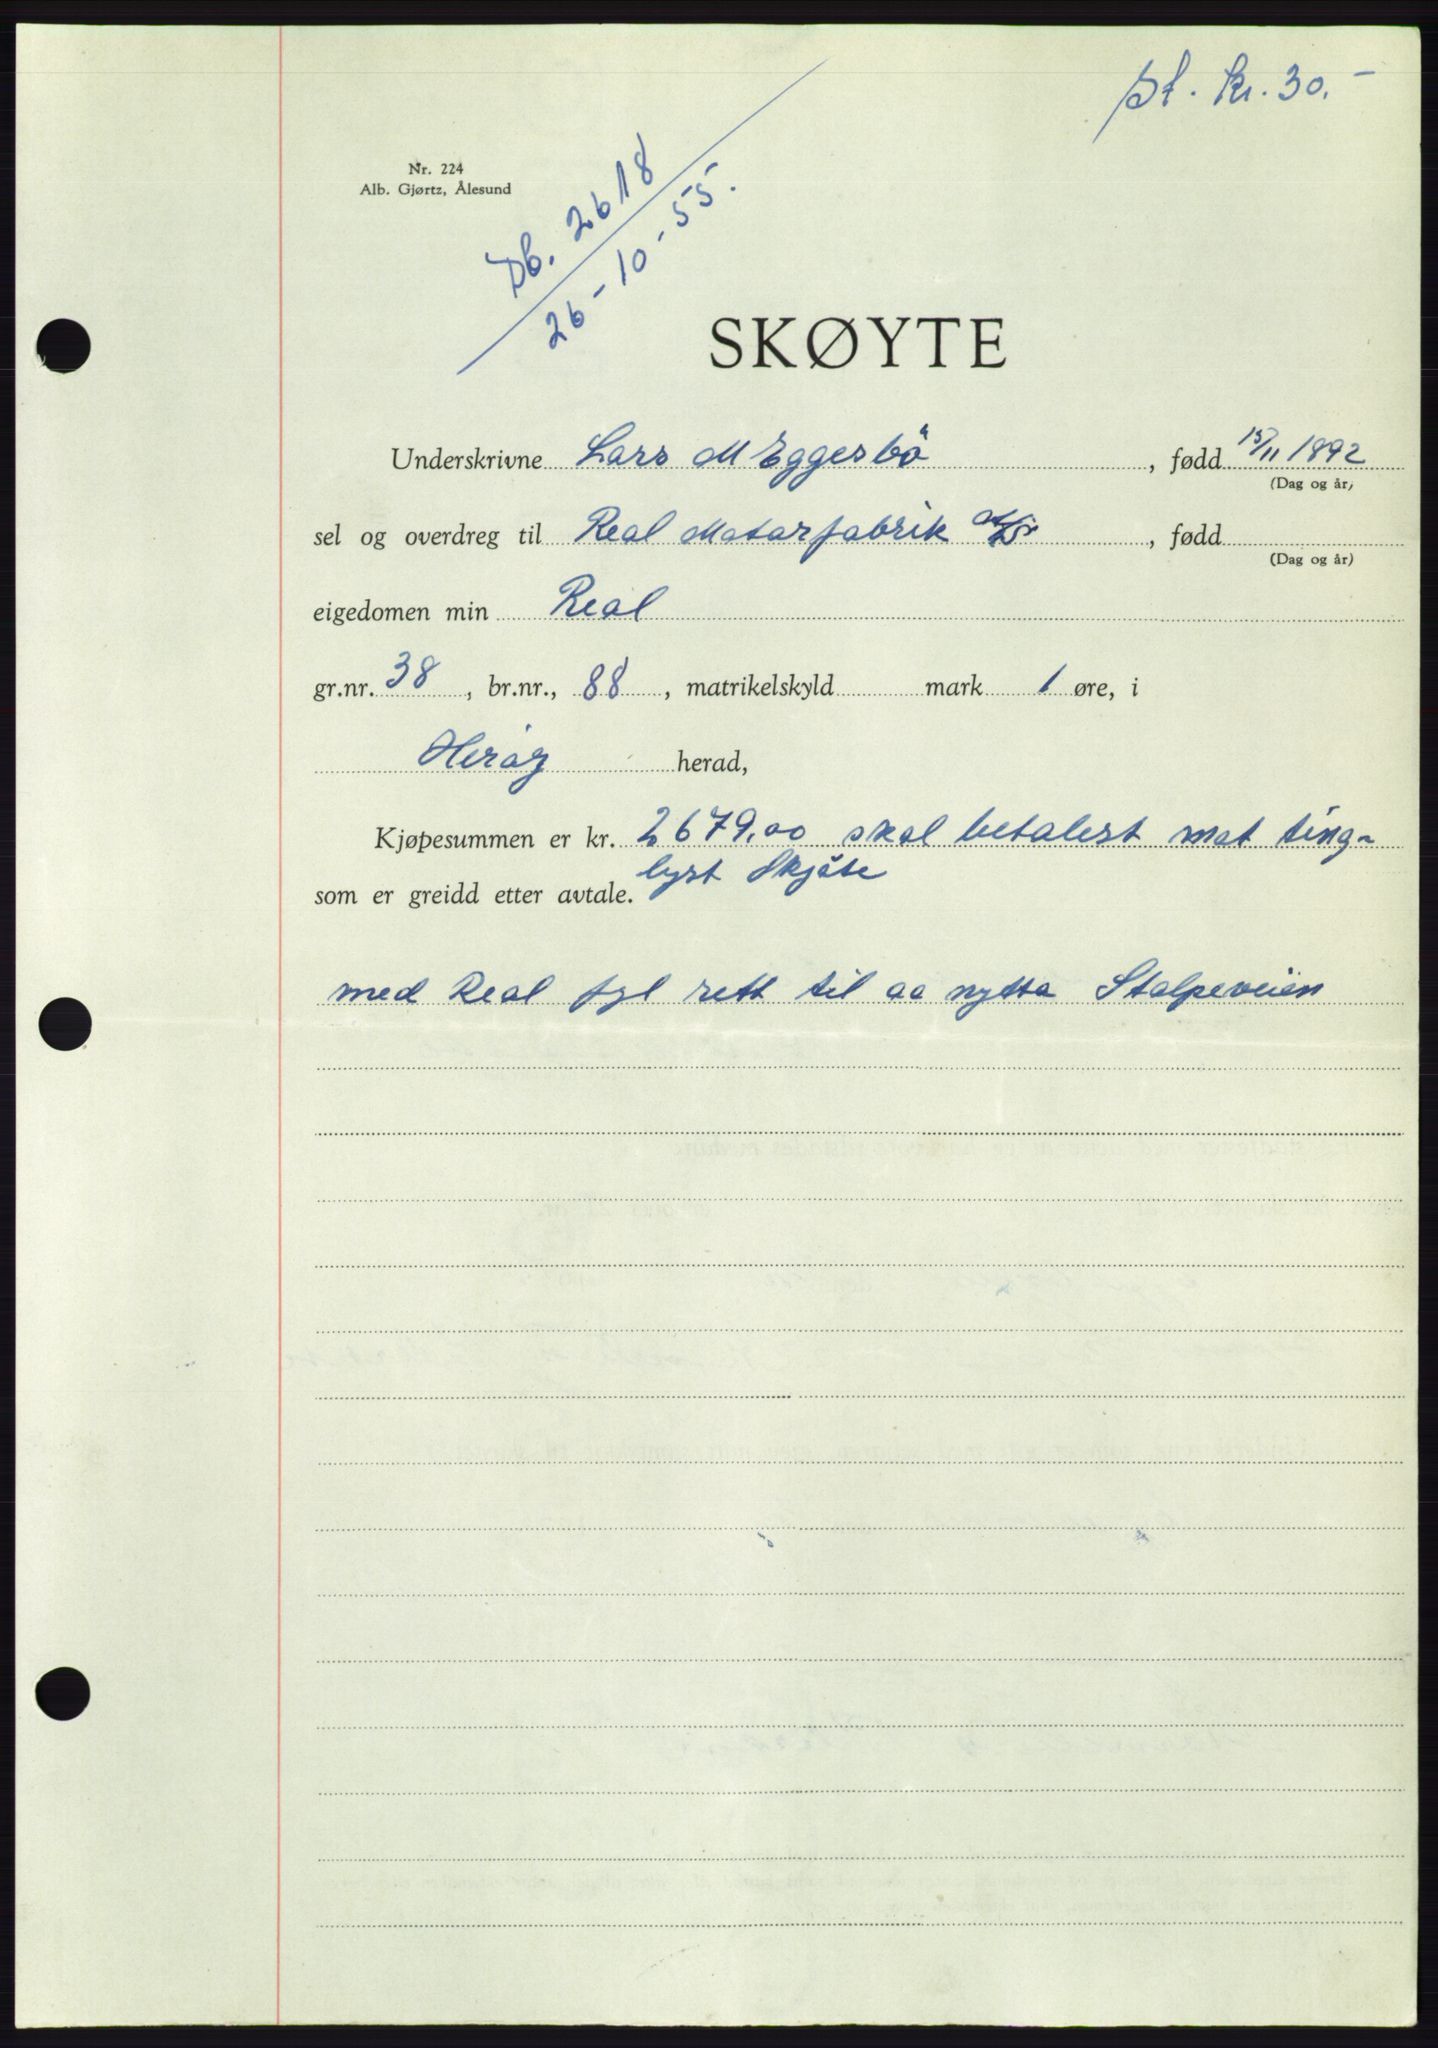 St. kr. 30.-
Nr. 224
Alb. Gjørtz, Ålesund
Db. 2618
26-10-55.
SKØYTE
Underskrivne Lars M Eggesbö, fødd 15/11 1892
(Dag og år)
sel og overdreg til Real Matarfabrik, fødd
(Dag og år)
eigedomen min Real
gr.nr. 38, br.nr., 88, matrikelskyld mark 1 øre, i
Heröy herad,
Kjøpesummen er kr. 2679,00 skal betalest mot ting-
lyst Skjöte
som er greidd etter avtale.
med Real fyl rett til aa nytta Stalpeveien